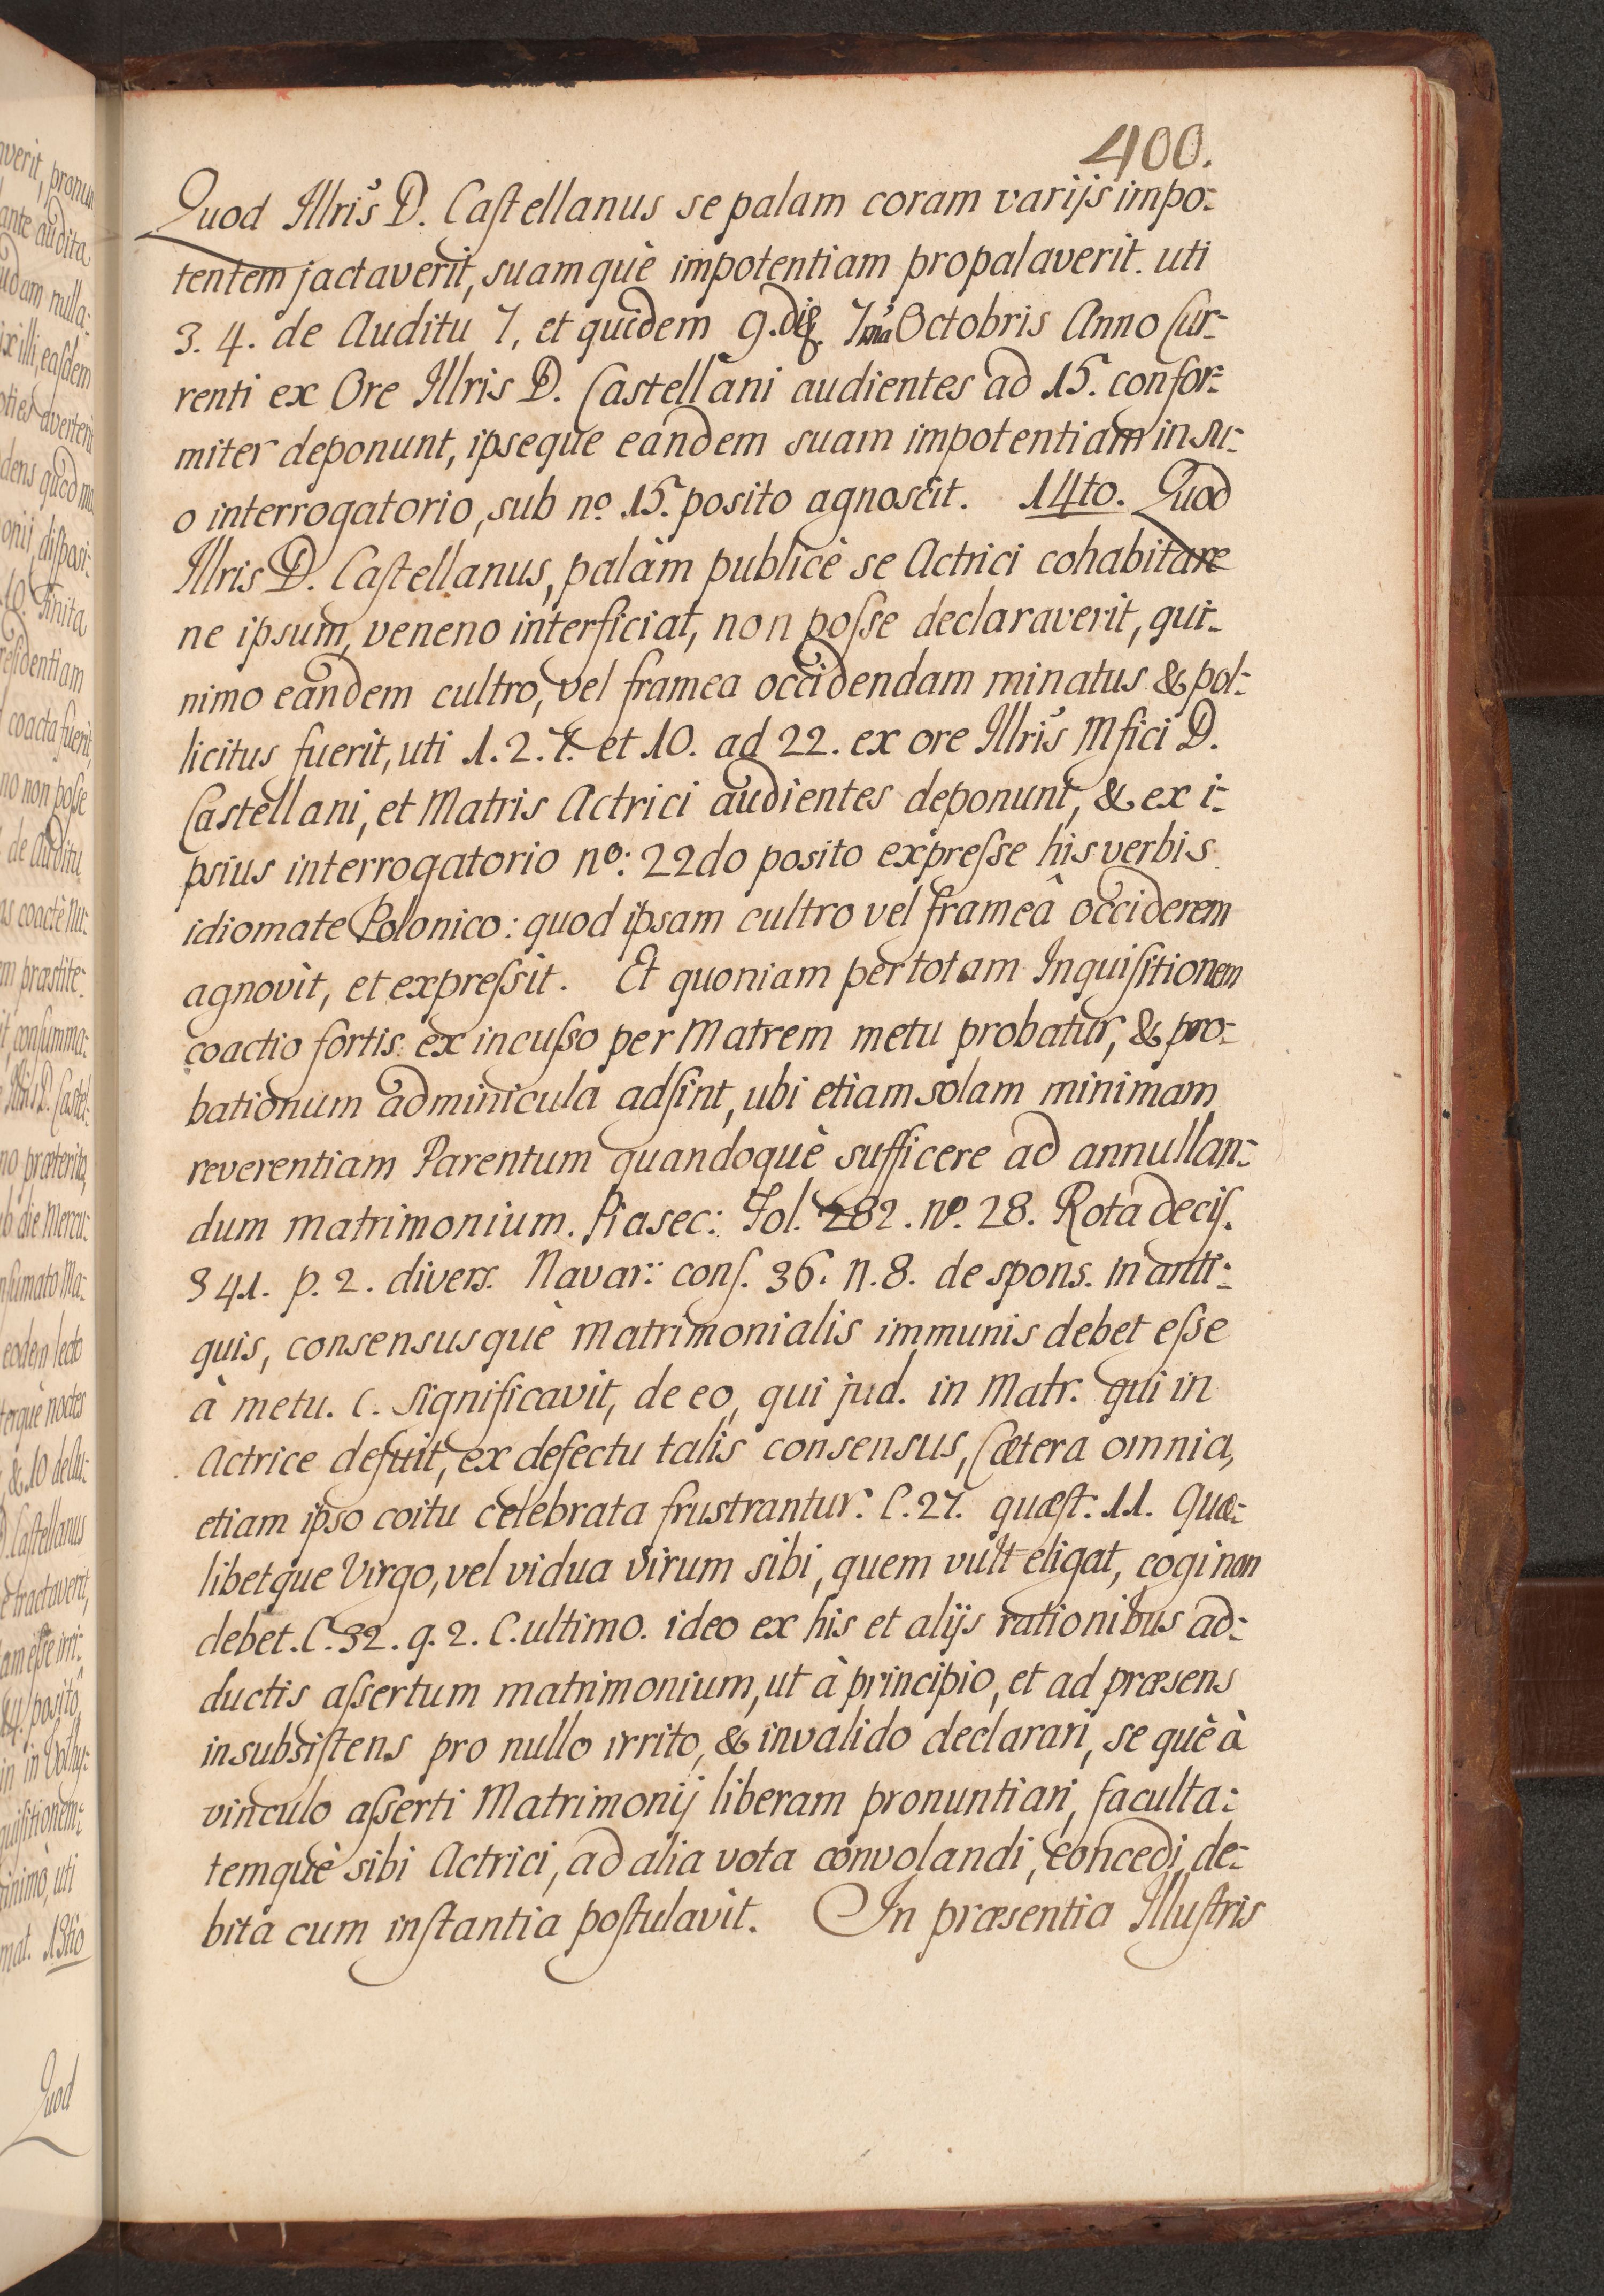 400.
Quod Illris D. Castellanus se palam coram varijs impo:
tentem jactaverit, suamquè impotentiam propalaverit. uti
3. 4. de Auditu 7, et quidem 9. die 7ma Octobris Anno Cur:
renti ex Ore Illris D. Castellani audientes ad 15. confor:
miter deponunt, ipseque eandem suam impotentiam in su:
o interrogatorio, sub no. 15. posito agnoscit. 14to. Quod
Illris D. Castellanus, palàm publicè se Actrici cohabitare
ne ipsum, veneno interficiat, non posse declaraverit, qui:
nimo eandem cultro, vel framea occidendam minatus & pol:
licitus fuerit, uti 1. 2. 7. et 10. ad 22. ex ore Illris Mfici D.
Castellani, et Matris Actrici audientes deponunt, & ex i:
psius interrogatorio no: 22do posito expresse his verbis
idiomate Polonico: quod ipsam cultro vel frameâ occiderem
agnovit, et expressit. Et quoniam per totam Inquisitionem
coactio fortis ex incusso per Matrem metu probatur, & pro:
bationum adminicula adsint, ubi etiam solam minimam
reverentiam Parentum quandoquè sufficere ad annullan:
dum matrimonium. Piasec: Fol. 282. No. 28. Rota decis.
341. p. 2. divers. Navar: cons. 36. n. 8. de spons. in anti:
quis, consensusquè Matrimonialis immunis debet esse
à metu. C. Significavit, de eo, qui jud. in Matr. qui in
Actrice defuit, ex defectu talis consensus, Cætera omnia,
etiam ipso coitu celebrata frustrantur. C. 27. quæst: 11. Quæ:
libetque Virgo, vel vidua virum sibi, quem vult eligat, cogi non
debet. C. 32. q. 2. C. ultimo. ideo ex his et alijs rationibus ad:
ductis assertum matrimonium, ut à principio, et ad præsens
insubsistens pro nullo irrito, & invalido declarari, se què à
vinculo asserti Matrimonij liberam pronuntiari, faculta:
temquè sibi Actrici, ad alia vota convolandi, concedi de:
bita cum instantia postulavit. In præsentia Illustris